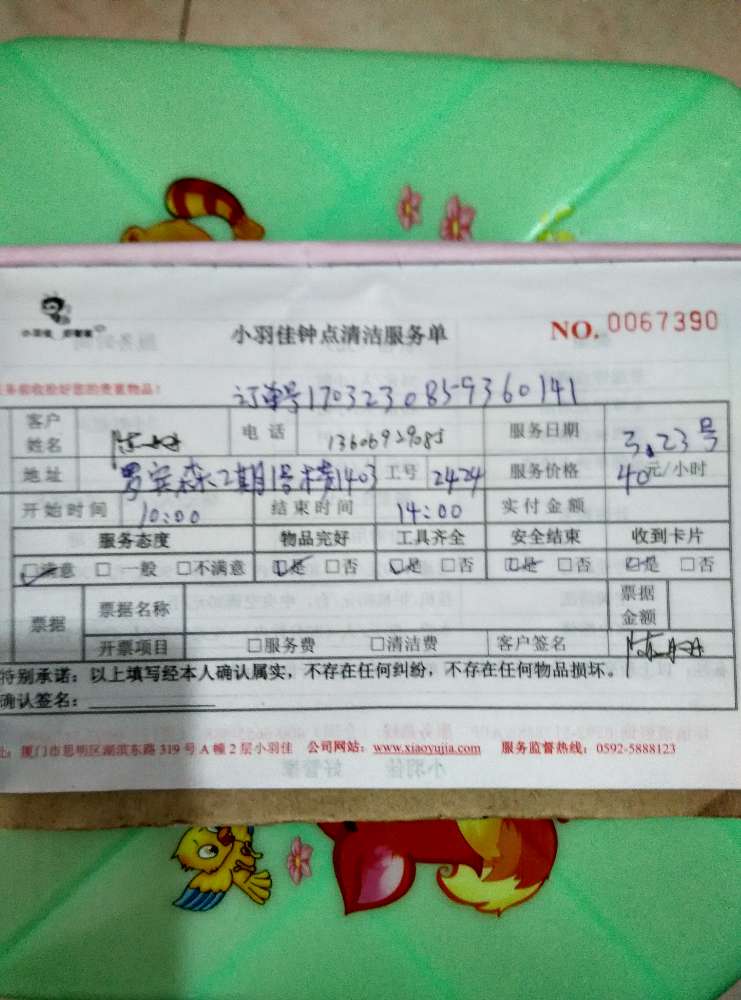 小羽佳 好管家
小羽佳钟点清洁服务单
NO. 0067390
务前收检好您的贵重物品!
订单号1703230859360141
客户姓名 陈 电话 13606929085 服务日期 3.23号
地址 2期1号楼1403 工号 2424 服务价格 40元/小时
开始时间 10:00 结束时间 14:00 实付金额
服务态度 物品完好 工具齐全 安全结束 收到卡片
□满意 □一般 □不满意 □是 □否 □是 □否 □是 □否 □是 □否
票据 票据名称 票据金额
开票项目 □服务费 □清洁费 客户签名 陈
特别承诺:以上填写经本人确认属实,不存在任何纠纷,不存在任何物品损坏。
确认签名:
址:厦门市思明区湖滨东路319号A幢2层小羽佳 公司网站:www.xiaoyujia.com 服务监督热线:0592-5888123